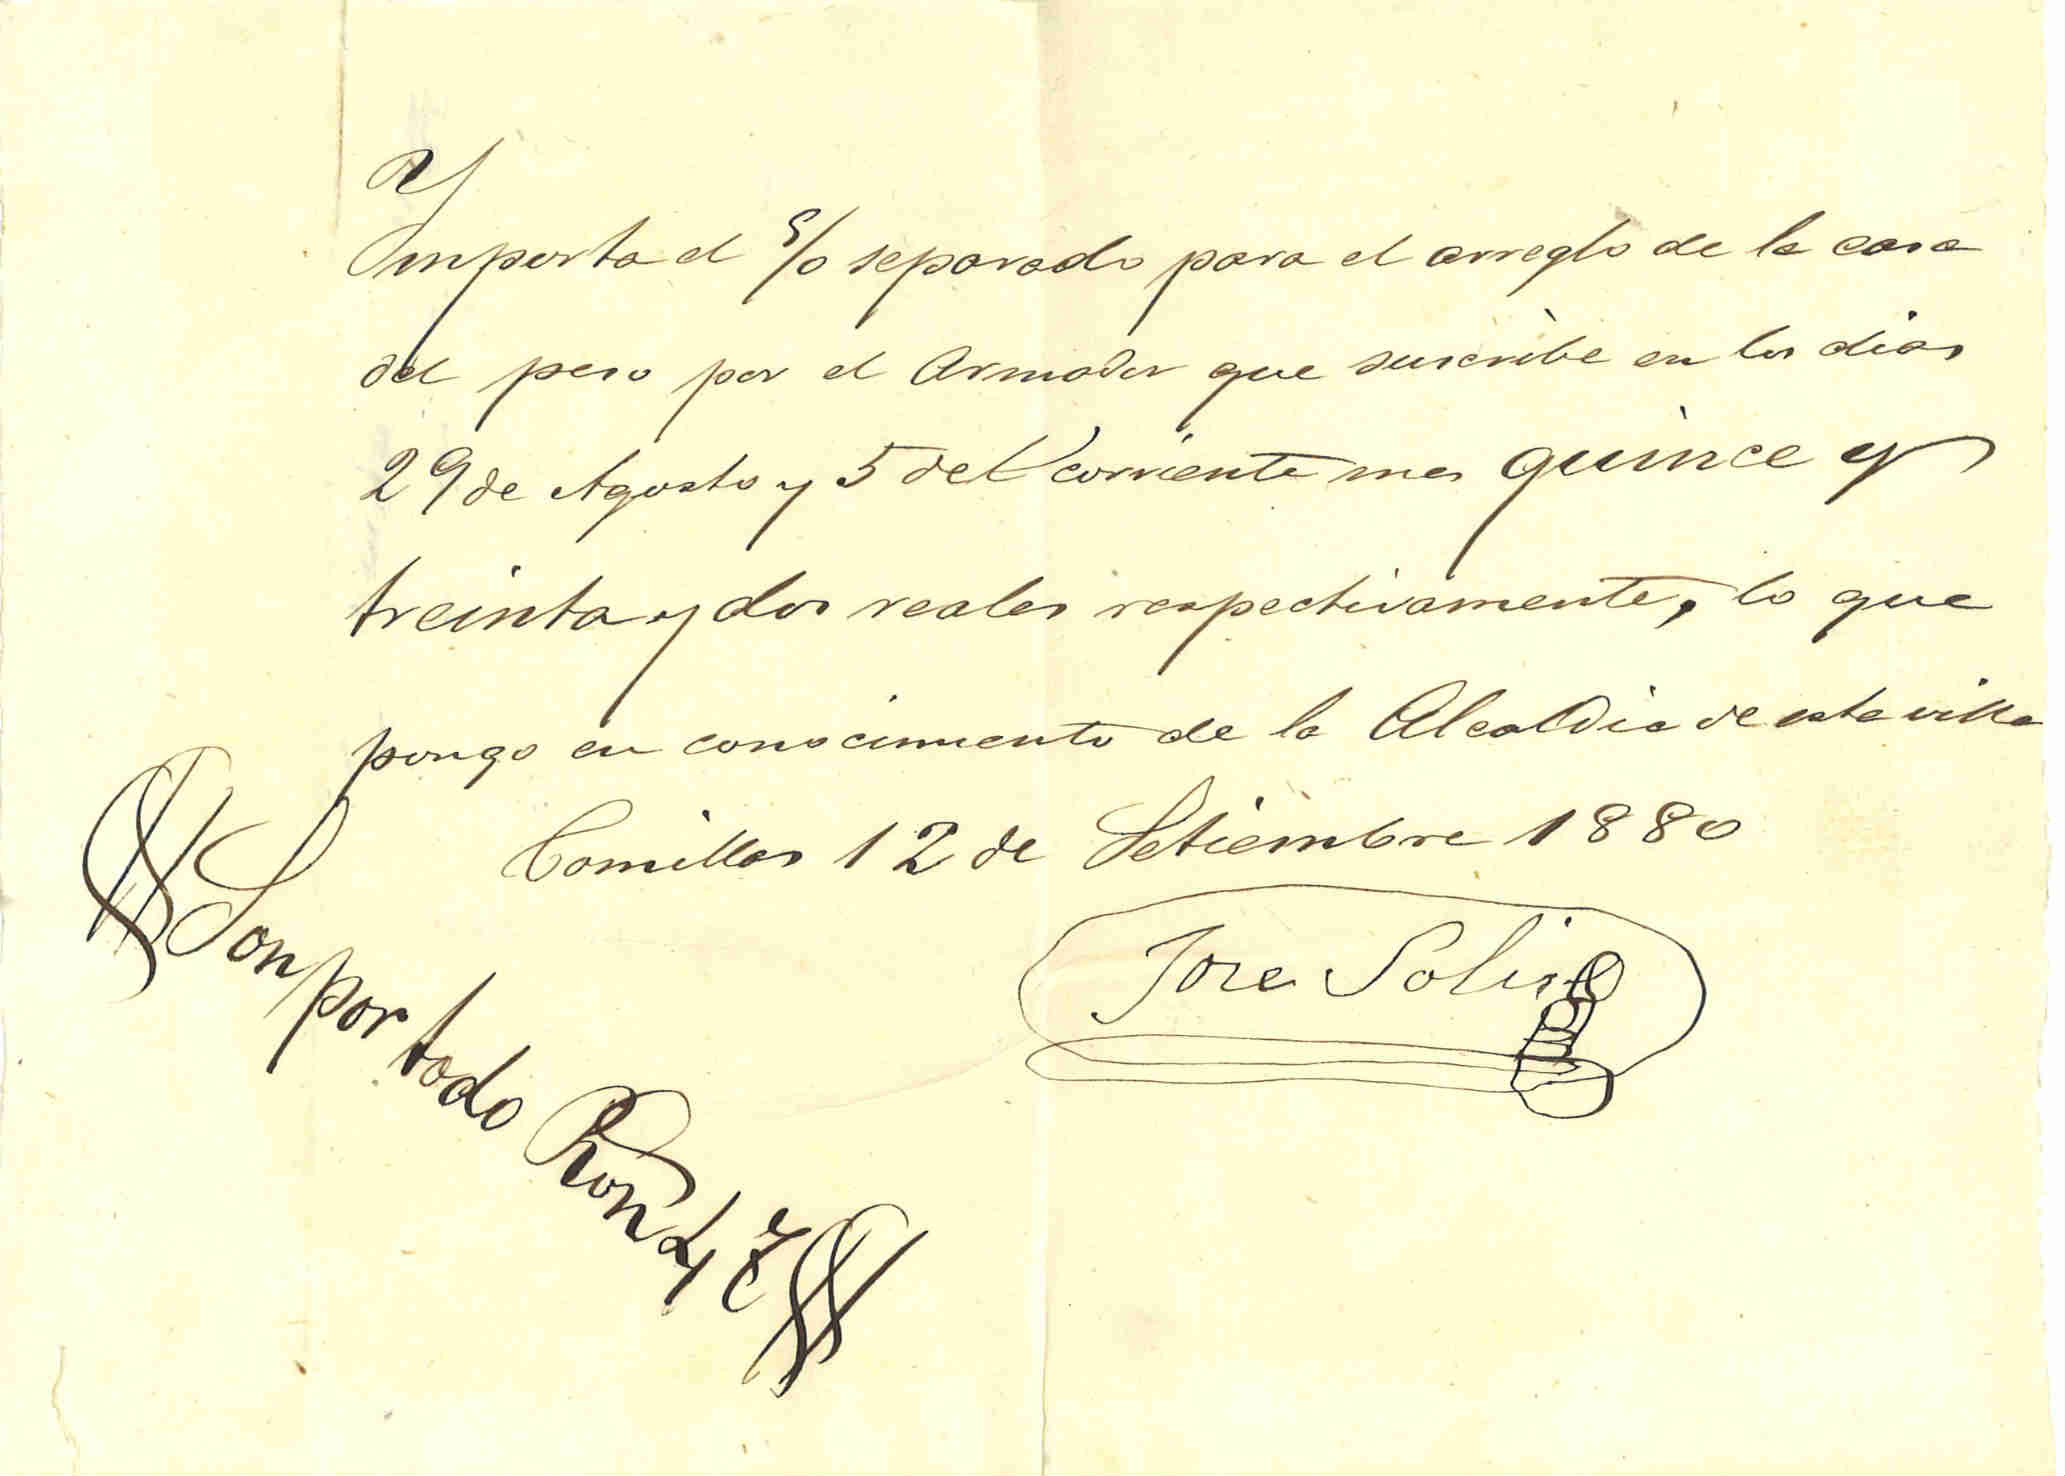 Importa el % separado para el arreglo de la casa
del peso por el Armador que suscribe en los dias
29 de Agosto y 5 del corriente mes quince y
treinta y dos reales respectivamente, lo que
pongo en conocimiento de la Alcaldia de esta villa
Comillas 12 de Setiembre 1880
Jose Solis
Son por todo Rvon 47